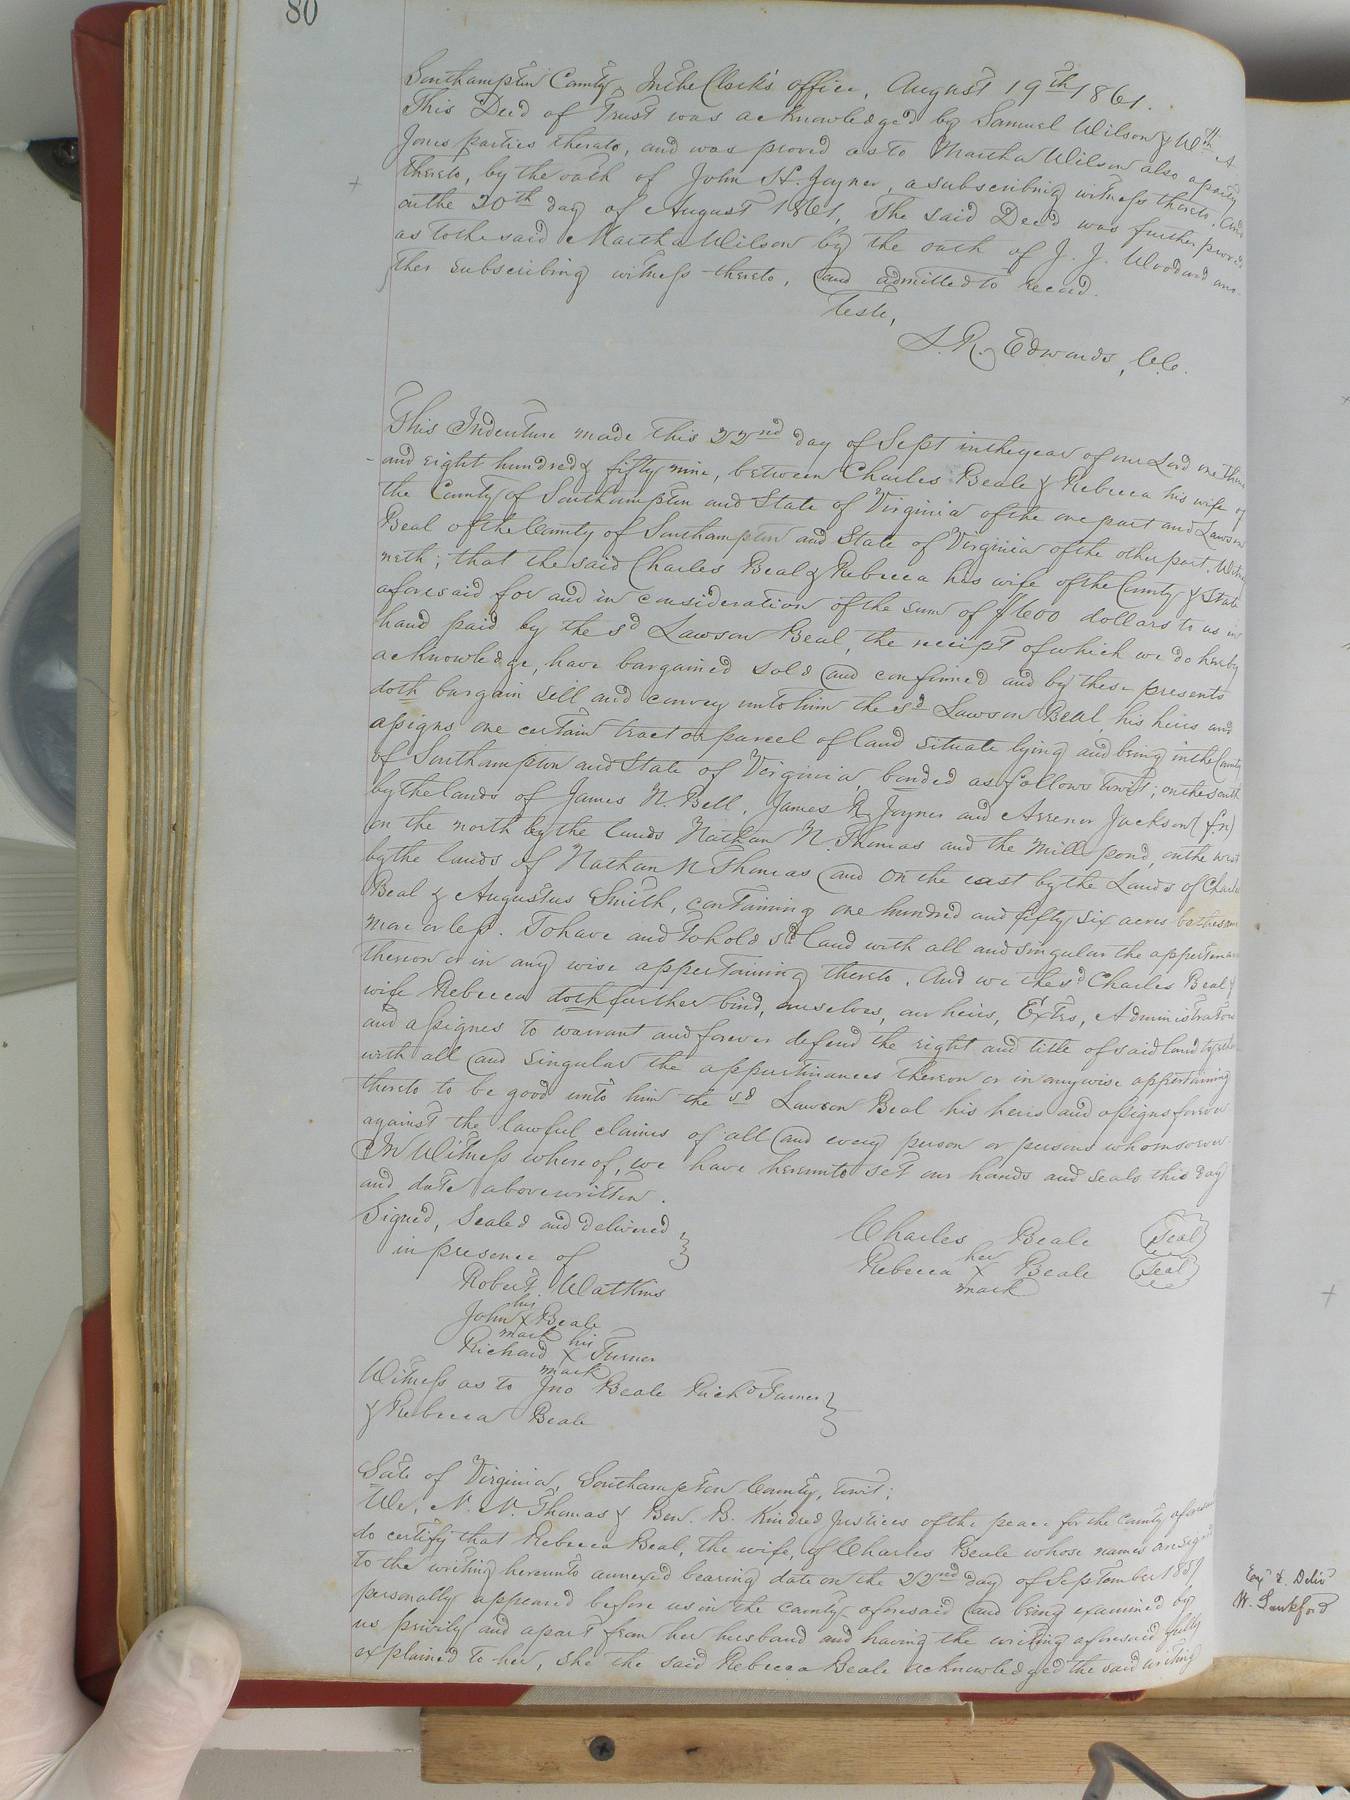 80
Southampton County, In the Clerk's office, August 19th 1861.
This Deed of Trust was acknowledged by Samuel Wilson & Wm A.
Jones parties thereto, and was proved as to Martha Wilson also a party
thereto, by the oath of John H. Joyner, a subscribing witness thereto. And
on the 20th day of August 1861, The said Deed was further proved
as to the said Martha Wilson by the oath of J. J. Woodard ano-
ther subscribing witness thereto, and admitted to record.
Teste,
L. R. Edwards, C.C.
This Indenture made this 22nd day of Sept in the year of our Lord one Thous
and eight hundred & fifty nine, between Charles Beale & Rebecca his wife of
the County of Southampton and State of Virginia of the one part and Lawson
Beal of the County of Southampton and State of Virginia of the other part. Witnes
neth; that the said Charles Beal & Rebecca his wife of the County & State
aforesaid for and in consideration of the sum of $600 dollars to us in
hand paid by the sd Lawson Beal, the receipt of which we do hereby
acknowledge, have bargained sold and confirmed and by these presents
doth bargain sell and convey unto him the sd Lawson Beal, his heirs and
assigns one certain tract or parcel of land situate lying and being in the County
of Southampton and State of Virginia, bonded as follows towit; on the south
by the lands of James N. Bell, James R Joyner and Arrenor Jackson (f.n)
on the north by the lands Nathan N. Thomas and the Mill pond, on the west
by the lands of Nathan N Thomas and on the east by the Lands of Charles
Beal & Augustus Smith, containing one hundred and fifty six acres be the same
more or less. To have and To hold sd land with all and singular the appertenan
thereon or in any wise appertaining thereto. And we the sd Charles Beal &
wife Rebecca doth further bind, ourselves, our heirs, Extrs, Administrators
and assignes to warrant and forever defend the right and title of said land together
with all and singular the appurtinances thereon or in anywise appertaining
thereto to be good unto him the sd Lawson Beal his heirs and assigns forever
against the lawful claims of all and every person or persons whomsoever
In Witness whereof, we have hereunto set our hands and seals this day
and date above written.
Signed, Sealed and delivered Charles Beale (Seal)
in presence of Rebecca her X mark Beale (Seal)
Robert Watkins
John his X mark Beale
Richard his X mark Turner
Witness as to Jno Beale Richd Turner
& Rebecca Beale
Sate of Virginia, Southampton County, towit;
We, N. N. Thomas & Ben. B. Kindred Justices of the peace for the County aforesaid
do certify that Rebecca Beal, the wife, of Charles Beale whose names are signed
to the writing hereunto annexed bearing date on the 22nd day of September 1859
personally appeared before us in the County aforesaid and being examined by
us privily and apart from her husband and having the writing aforesaid fully
explained to her, she the said Rebecca Beale acknowledged the said writing
Exd & Delivd
W. Lankford